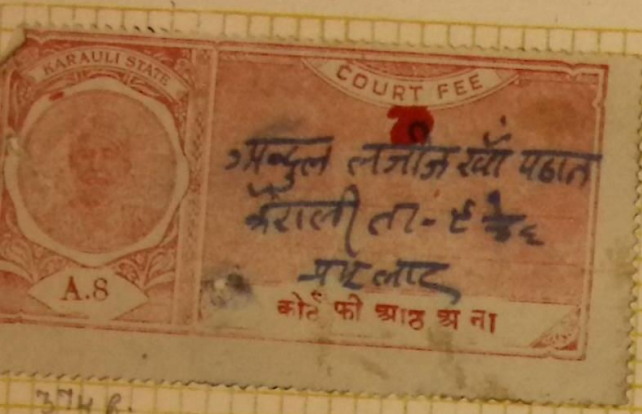 KARAULI STATE
COURT FEE
अब्दुल लजीज खाँ पठान
करौली ता-
A.8
कोर्ट फी आठ आना
374